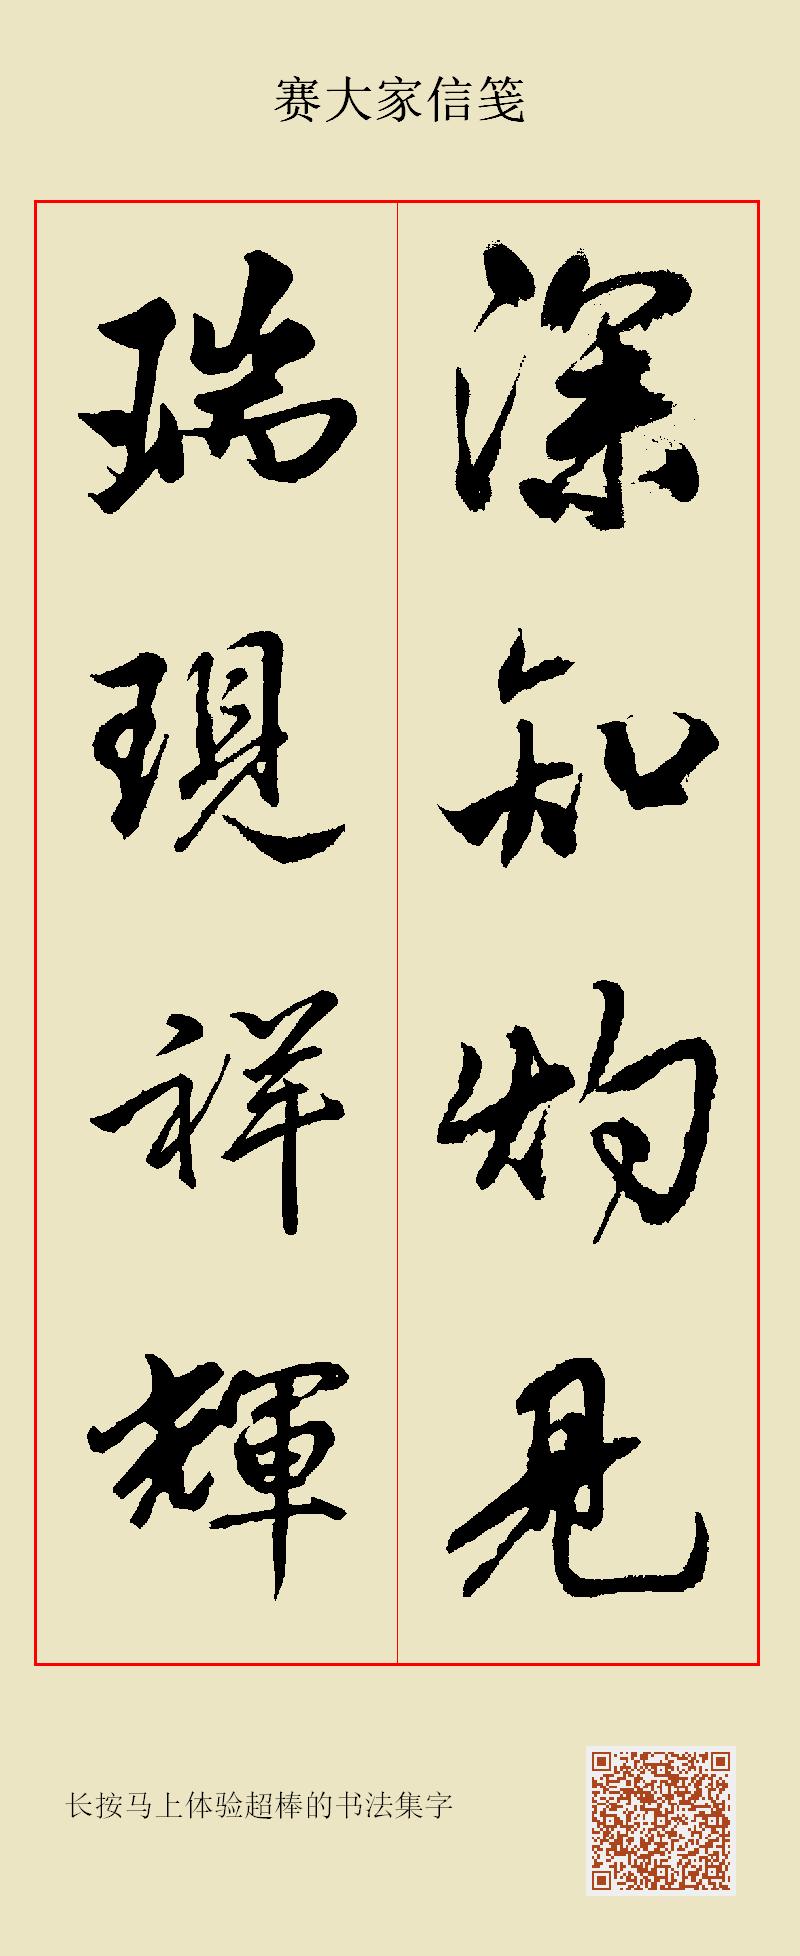 赛大家信笺
深知灼见
瑞現祥輝
长按马上体验超棒的书法集字